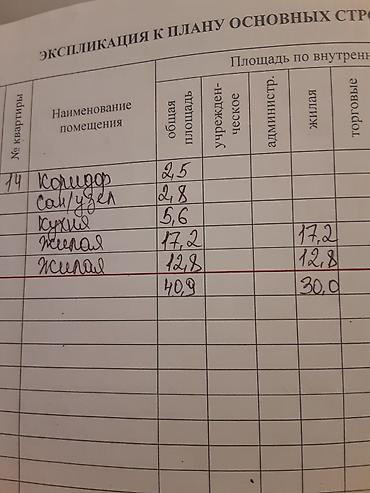 ЭКСПЛИКАЦИЯ К ПЛАНУ ОСНОВНЫХ СТРО
Площадь по внутренн
№ квартиры
Наименование помещения
общая площадь
учрежден-ческое
администр.
жилая
торговые
14 Коридор 2,5
Сан/узел 2,8
Кухня 5,6
Жилая 17,2 17,2
Жилая 12,8 12,8
40,9 30,0